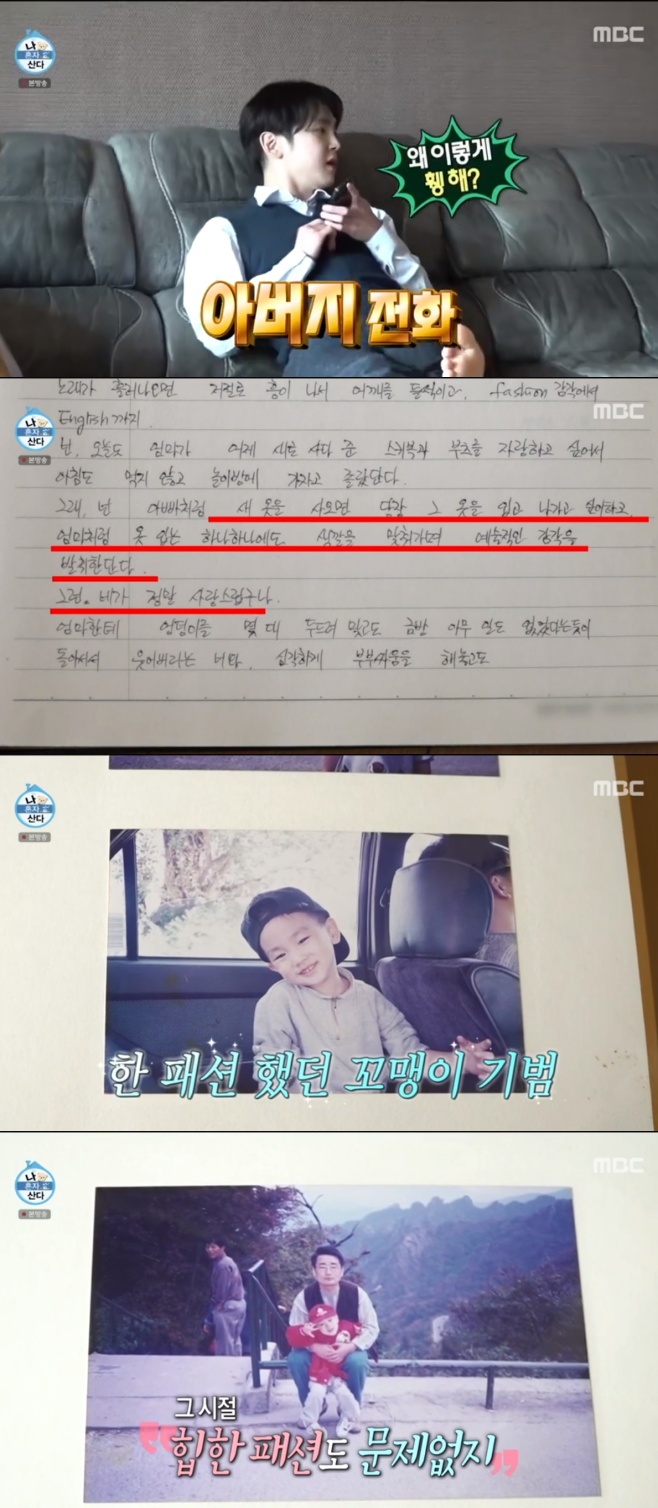 나
혼자
산다
본방송
MBC
왜 이렇게
휑 해?
아버지 전화
노래가 흘러나오면 저절로 흥이 나서 어깨를 들썩이고, fashion 감각에서
English 까지.
MBC
나
혼자
산다
본방송
넌, 오늘도 엄마가 어제 새로 사다 준 스키복과 부츠를 자랑하고 싶어서
아침도 먹지 않고 놀이방에 가자고 졸랐단다.
그래, 넌 아빠처럼 새 옷을 사오면 당장 그 옷을 입고 나가고 싶어하고,
엄마처럼 옷 입는 하나하나에도 색깔을 맞춰가며 예술적인 감각을
발휘한단다.
그런 네가 정말 사랑스럽구나.
엄마한테 엉덩이를 몇 대 두드려 맞고도 금방 아무 일도 없었다는듯이
돌아서서 웃어버리는 너다. 심각하게 부부싸움을 해놓고도
나
혼자
산다
본방송
MBC
한 패션 했던 꼬맹이 기범
나
혼자
산다
본방송
MBC
그 시절
"힙한 패션도 문제없지"